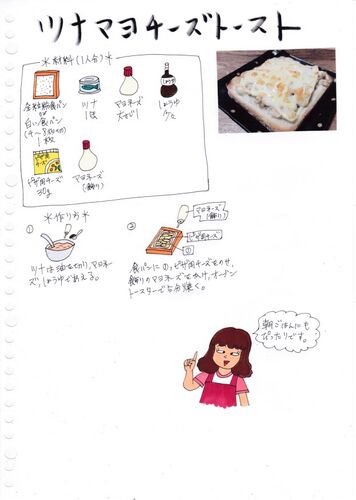 ツナマヨチーズトースト
＊材料(1人分)＊
全粒粉食パン
or
白い食パン
(4〜8枚切)
1枚
ツナ
1缶
マヨネーズ
大さじ1
しょうゆ
しょうゆ
少々
ピザ用チーズ
30g
マヨネーズ
(飾り)
＊作り方＊
①
ツナは油を切り、マヨネー
ズ、しょうゆであえる。
②
マヨネーズ
(飾り)
ピザ用チーズ
①
食パンに①、ピザ用チーズをのせ、
飾りのマヨネーズをかけ、オーブン
トースターで5分焼く。
朝ごはんにも
ぴったりです。